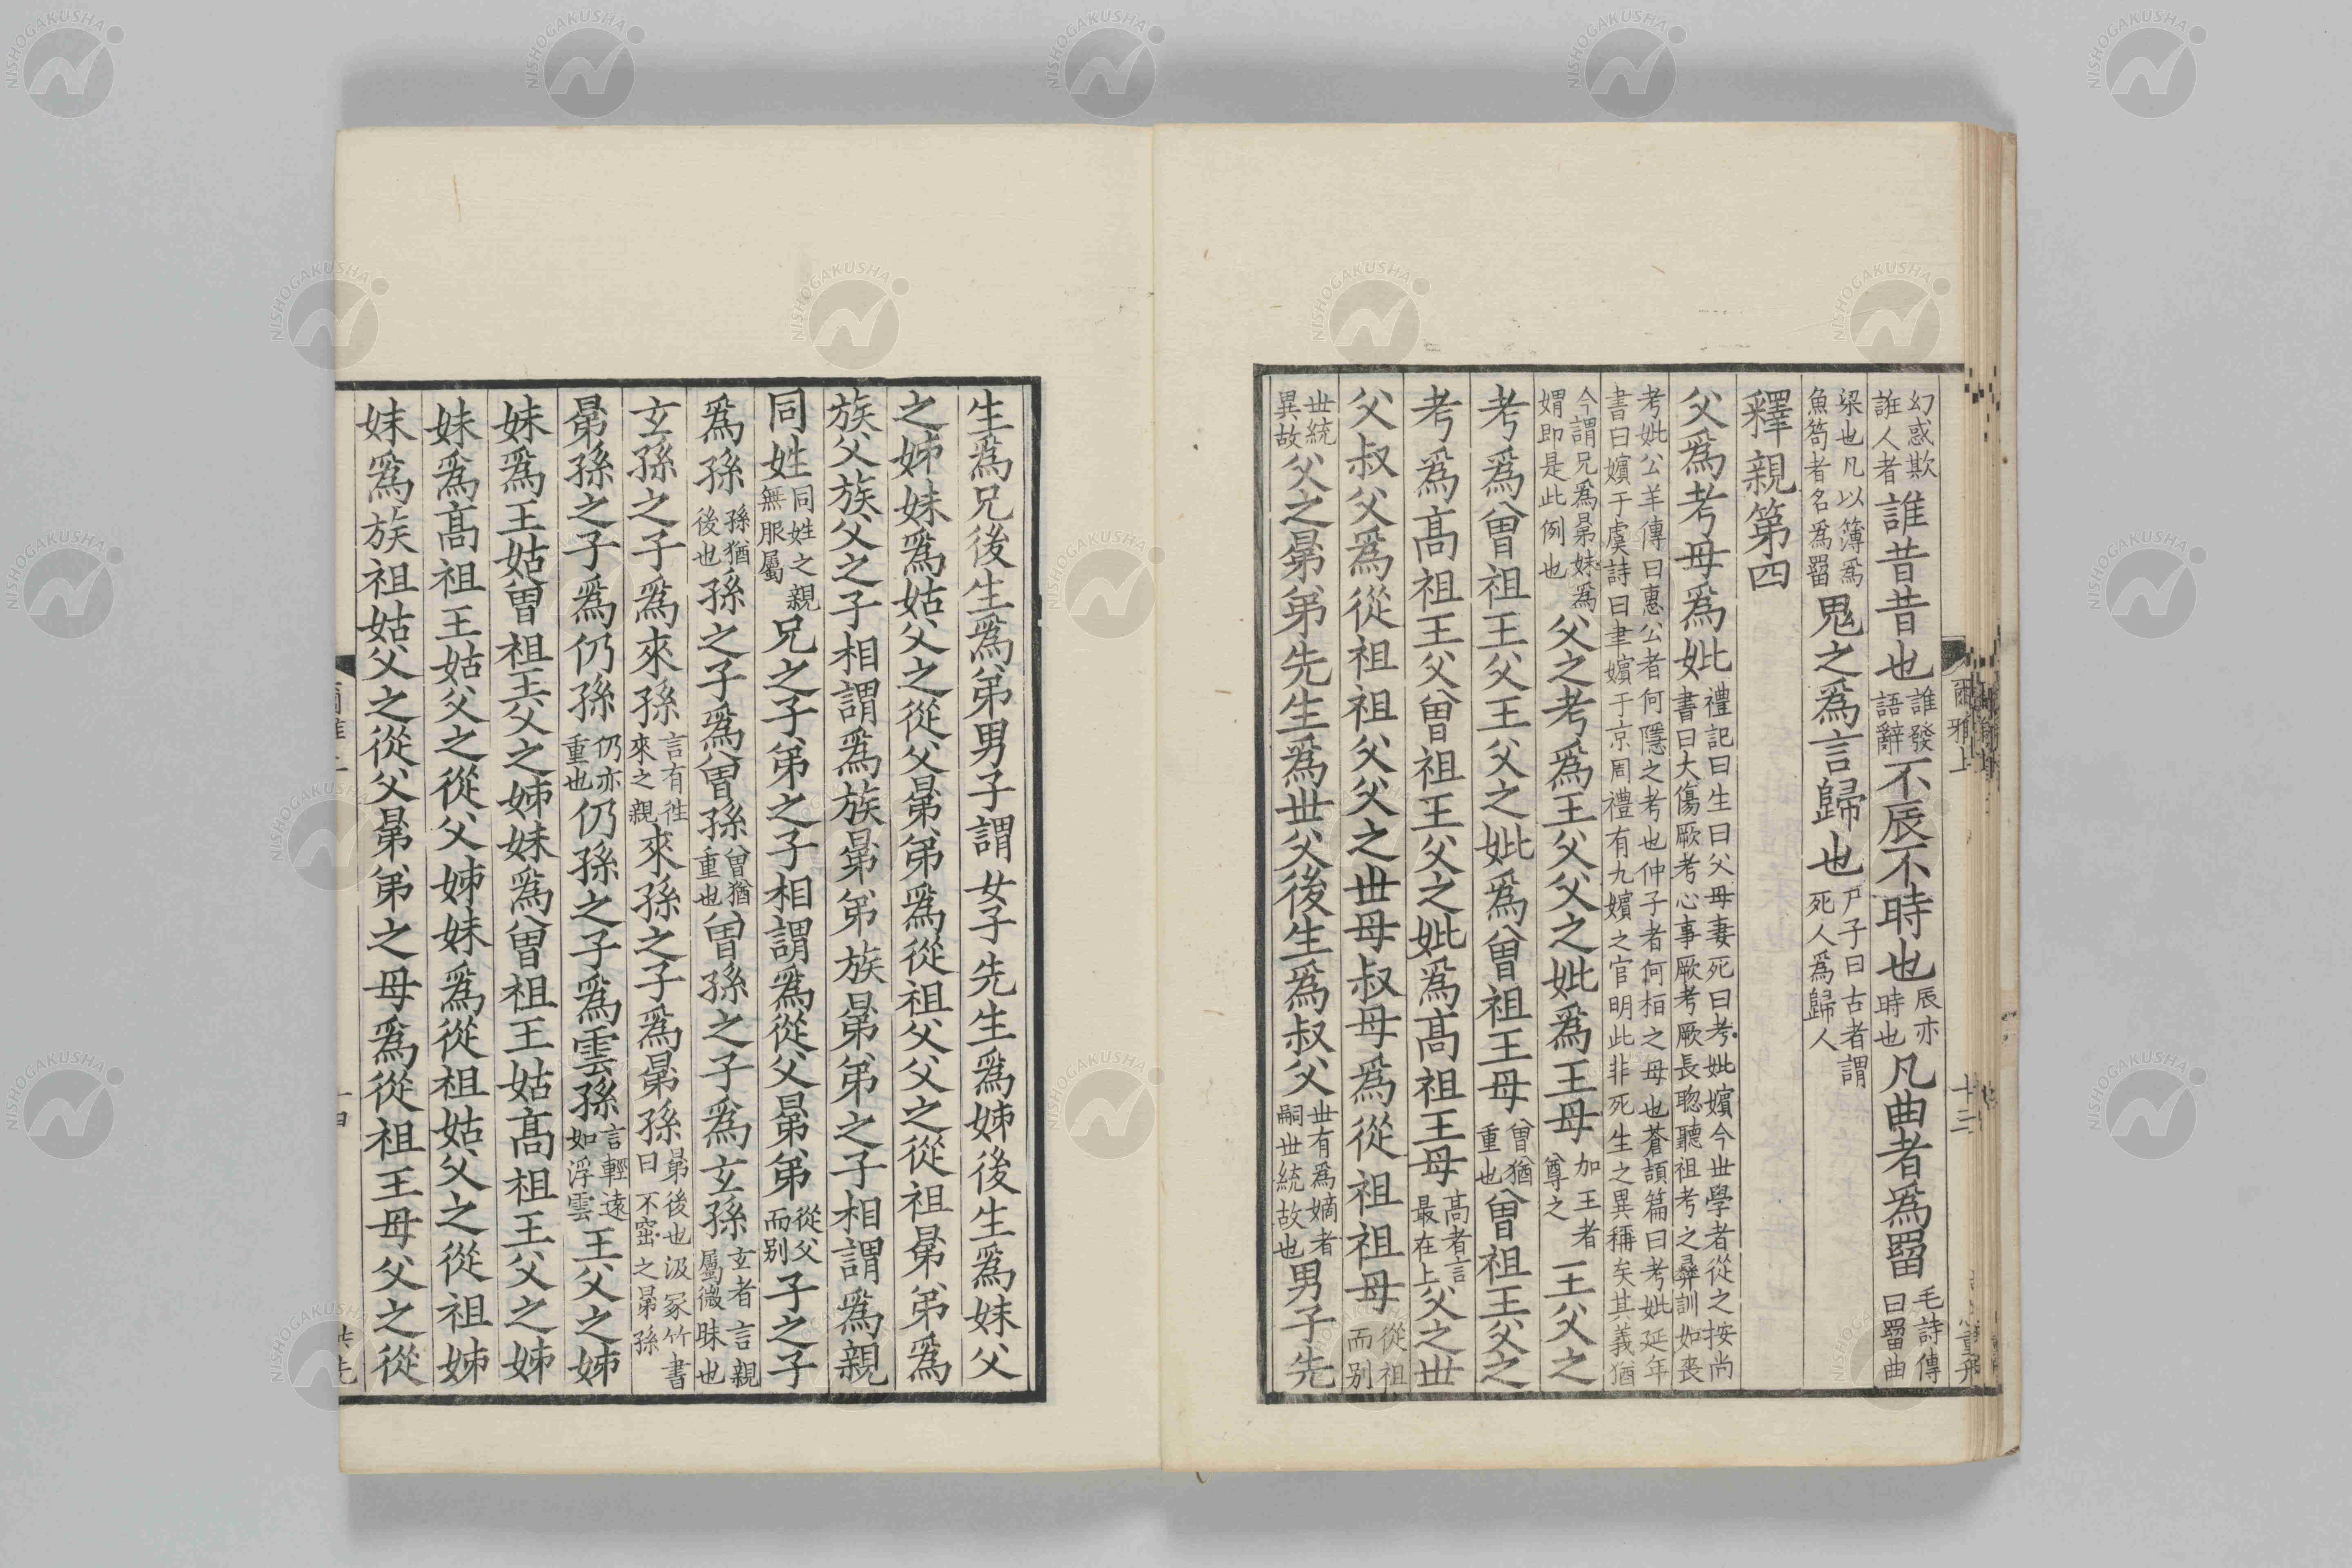 幻惑欺誑人者誰昔昔也誰發語辭不辰不時也辰亦時也凡曲者爲罶毛詩傳曰罶曲
梁也凡以簿爲魚笱者名爲罶鬼之爲言歸也尸子曰古者謂死人爲歸人
釋親第四
父爲考母爲妣禮記曰生曰父母妻死曰考妣嬪今世學者從之按尚書曰大傷厥考心事厥考厥長聦聽祖考之彝訓如喪
考妣公羊傳曰惠公者何隱之考也仲子者何桓之母也蒼頡篇曰考妣延年書曰嬪于虞詩曰聿嬪于京周禮有九嬪之官明此非死生之異稱矣其義猶
今謂兄爲晜妹爲媦即是此例也父之考爲王父父之妣爲王母加王者尊之王父之
考爲曾祖王父王父之妣爲曾祖王母曾猶重也曾祖王父之
考爲髙祖王父曾祖王父之妣爲髙祖王母髙者言最在上父之世
父叔父爲從祖祖父父之世母叔母爲從祖祖母從祖而别
世統異故父之晜弟先生爲世父後生爲叔父世有爲嫡者嗣世統故也男子先
爾雅上 十三
生爲兄後生爲弟男子謂女子先生爲姊後生爲妹父
之姊妹爲姑父之從父晜弟爲從祖父父之從祖晜弟爲
族父族父之子相謂爲族晜弟族晜弟之子相謂爲親
同姓同姓之親無服屬兄之子弟之子相謂爲從父晜弟從父而别子之子
爲孫孫猶後也孫之子爲曾孫曾猶重也曾孫之子爲玄孫玄者言親屬微昧也
玄孫之子爲來孫言有徃來之親來孫之子爲晜孫晜後也汲冢竹書曰不窋之晜孫
晜孫之子爲仍孫仍亦重也仍孫之子爲雲孫言輕遠如浮雲王父之姊
妹爲王姑曾祖王父之姊妹爲曾祖王姑髙祖王父之姊
妹爲髙祖王姑父之從父姊妹爲從祖姑父之從祖姊
妹爲族祖姑父之從父晜弟之母爲從祖王母父之從
NISHOGAKUSHA